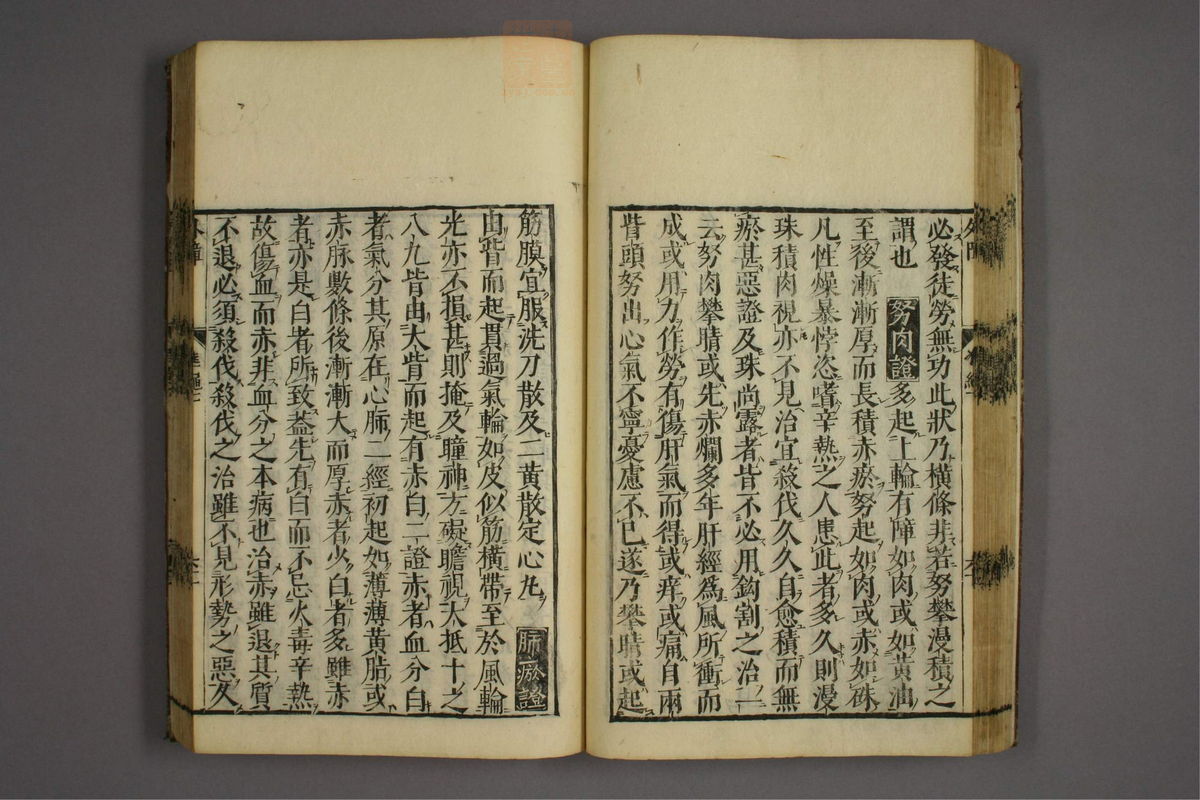 必發徒勞無功此狀乃橫條非若努攀漫積之
謂也 努肉證 多起上輪有障如肉或如黃油
至後漸漸厚而長積赤瘀努起如肉或赤如硃
凡性燥暴悖恣嗜辛熱之人患此者多久則漫
珠積肉視亦不見治宜殺伐久久自愈積而無
瘀甚惡證及珠尚露者皆不必用鈎割之治一
云努肉攀睛或先赤爛多年肝經爲風所衝而
成或用力作勞有傷肝氣而得或痒或痛自兩
眥頭努出心氣不寧憂慮不已遂乃攀睛或起
筋膜宜服洗刀散及二黃散定心丸 脈瘀證
由眥而起貫過氣輪如皮似筋橫帶至於風輪
光亦不損甚則掩及瞳神方礙瞻視大抵十之
八九皆由大眥而起有赤白二證赤者血分白
者氣分其原在心脈二經初起如薄薄黃脂或
赤脉數條後漸漸大而厚赤者少白者多雖赤
者亦是白者所致葢先有白而不忌火毒辛熱
故傷血而赤非血分之本病也治赤雖退其質
不退必須殺伐殺伐之治雖不見形勢之惡久